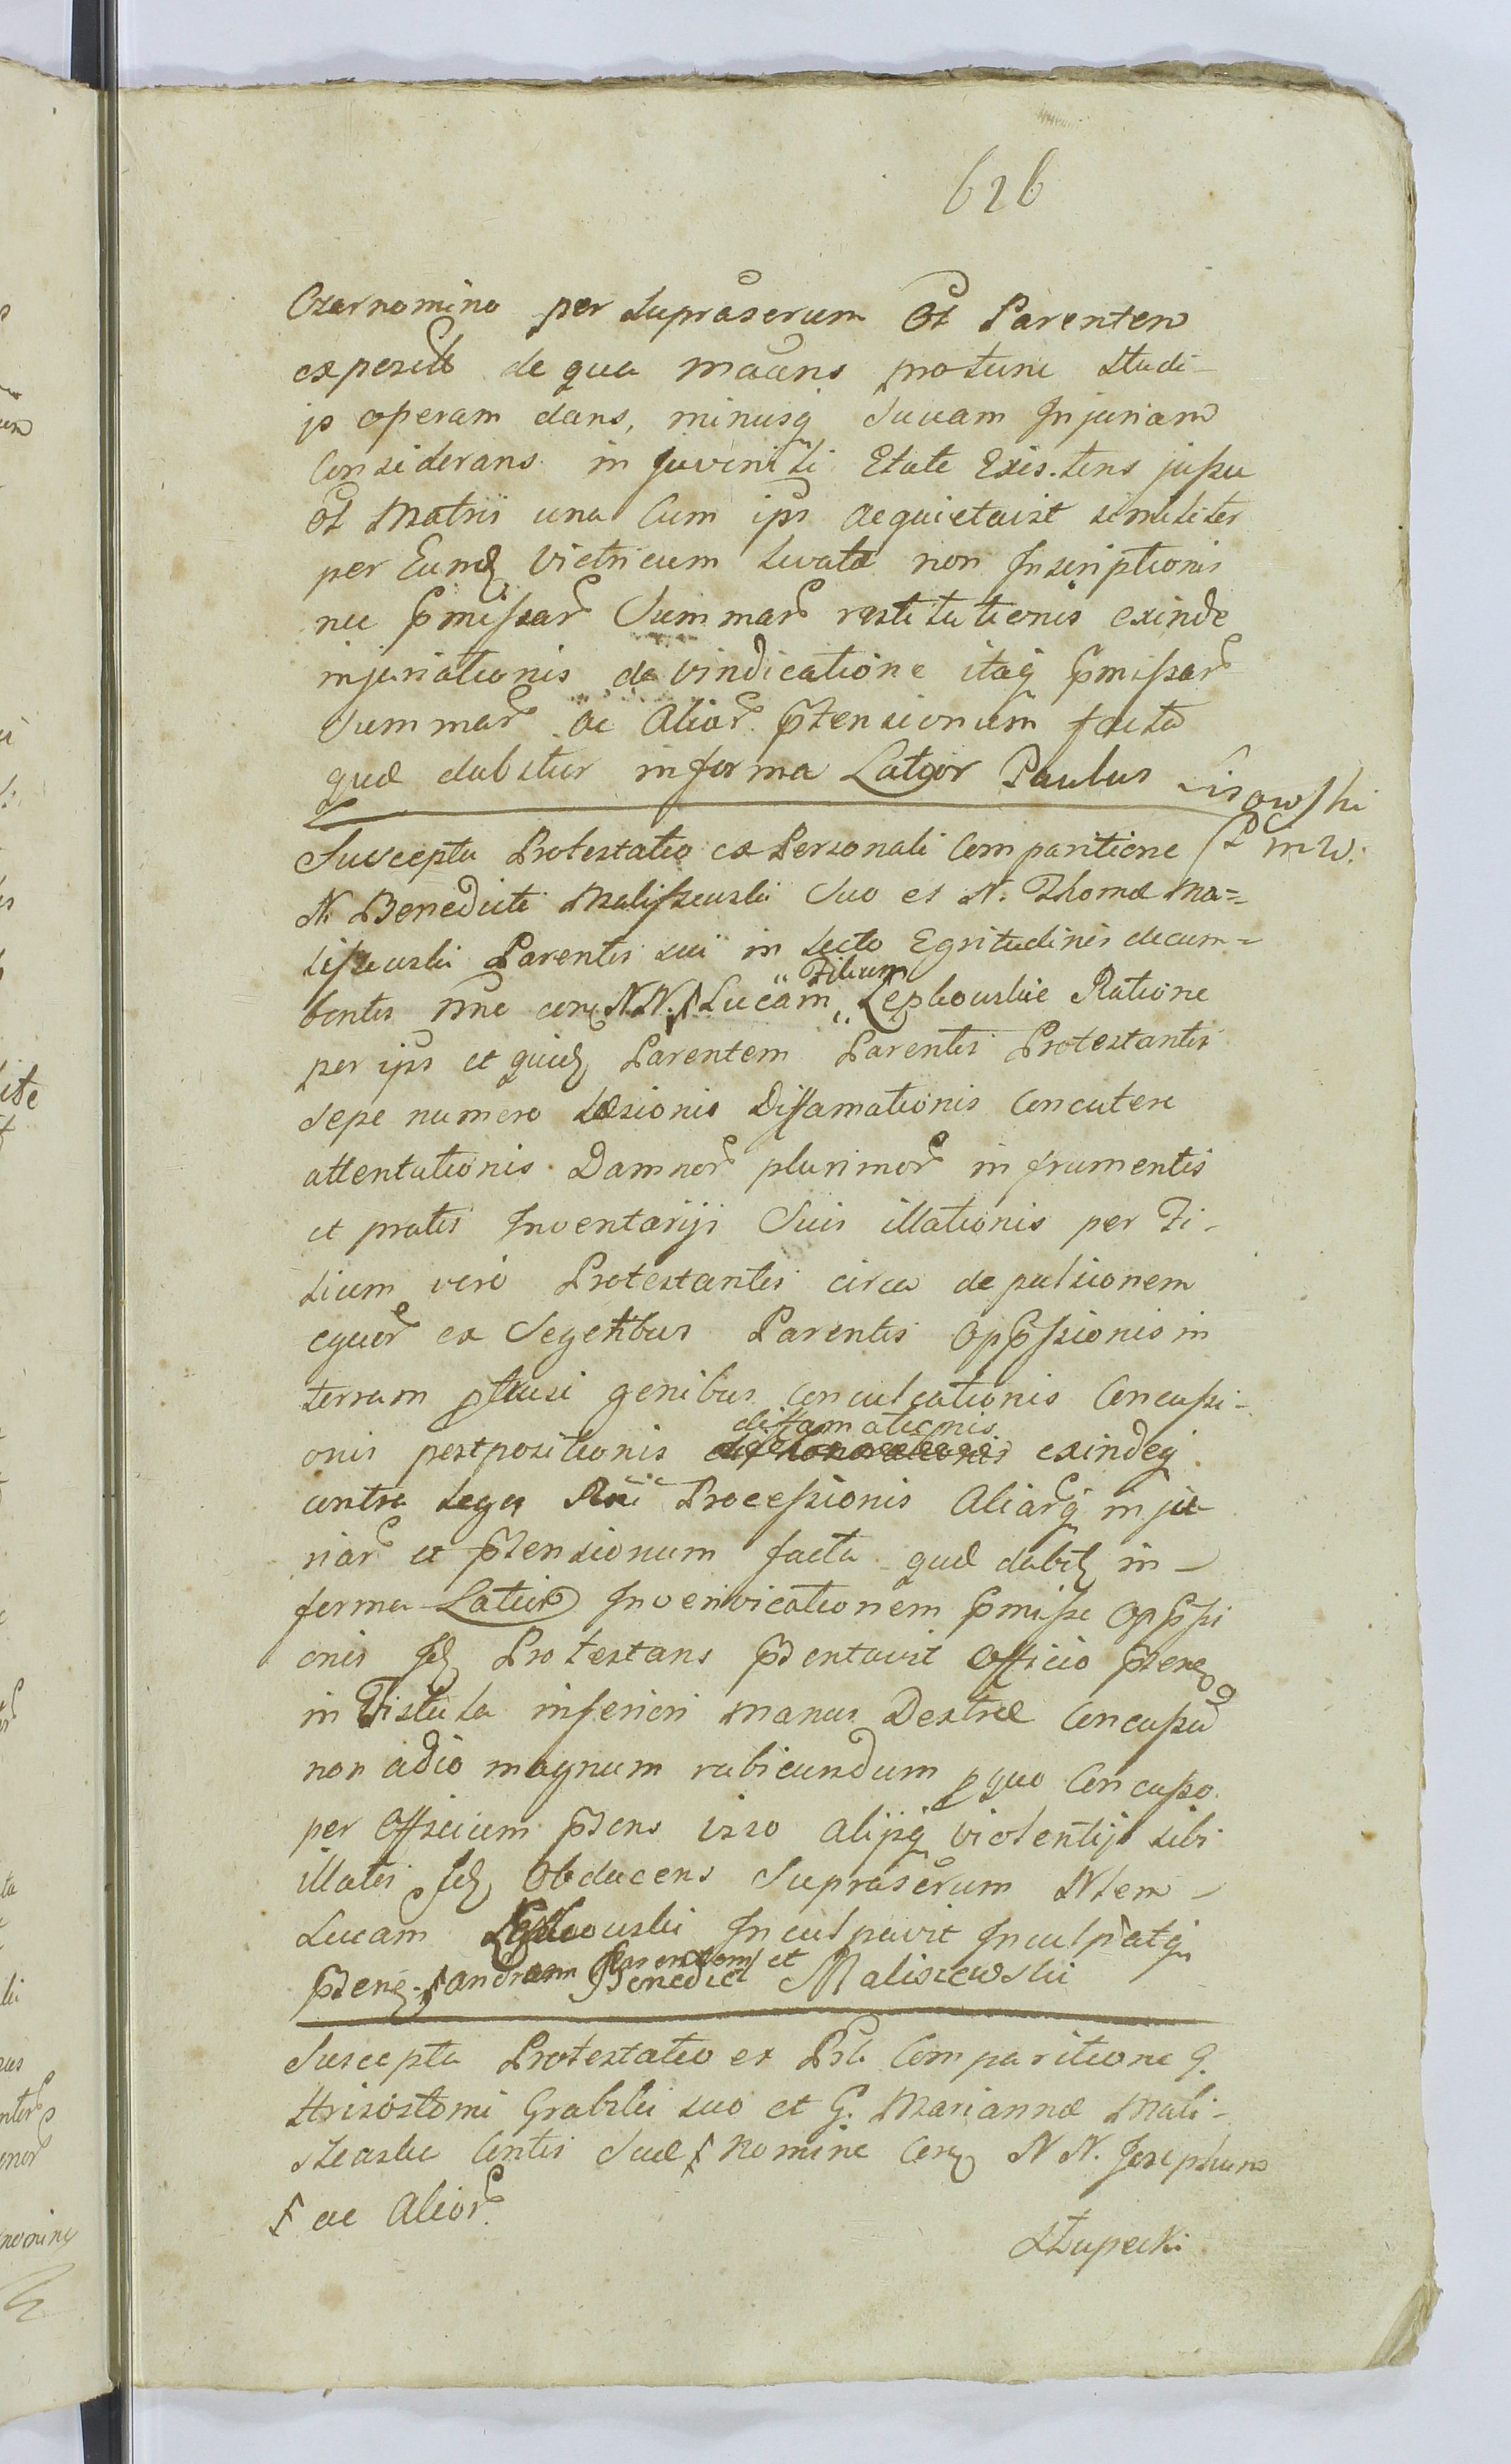 626
Czarnomino per supraserum Ol Parentem
expertt de qua macens protunc studi-
js operam dans, minusq suuam Injuriam
considerans in juvenili Etate Existens jussu
Ol Matris una cum ips acquietavit similiter
per Eund Vitricum levata non Inscriptionis
nec pmissar Summar restitutionis exinde
injuriationis de vindicatione itaq pmissar
Summar ac Alior ptensionum facta
quæ dabitur in forma Latior Paulus Lisowski
Suscepta Protestatio ex Personali Comparitione
N. Benedicti Maliszewski Suo et N. Thomæ Ma=
liszewski Parentis sui in lecto Egritudinis decum=
bentis nne con NN. Lucam Filium Lepkouskie Ratione
per ips et quid Parentem Parentis Protestantis
sepe numero Læsionis Diffamationis Concutere
attentationis Damnor plurimor in frumentis
et pratis Inventarijs Suis illationis per Fi-
lium vero Protestantis circa depulsionem
equor ex Segetibus Parentis Oppssionis in
terram genibus conculcationis Concussi-
onis postpositionis diffamationis exindeq
contra leges Rni Processionis Aliarq inju
riar et ptensionum facta quæ dabit in-
forma Latiori Inverivicationem pmisse Oppssi
onis Id Protestans psentavit Officio pseng
in Fistula inferiori manus Dextræ Concussum
non adio magnum rubicundum p quo Concusso
per Officium psens viso alijsq violentijs sibi
illatis Id Obducens Supraserum Ntem
Lucam Lepkouski Inculpavit Inculpatq
pseng andream Parentem et Benedict Maliszewski
Suscepta Protestatio ex Psli Comparitione G.
Hrisostomi Grabski suo et G. Mariannæ Mali-
szewskie Contis Suæ Nomine Con N N. Josephum
ac Alior
Słupecki